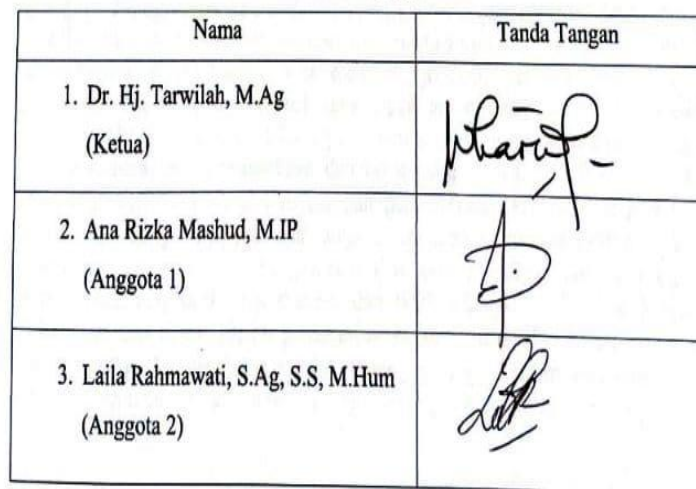 Nama Tanda Tangan
1. Dr. Hj. Tarwilah, M.Ag
(Ketua)
2. Ana Rizka Mashud, M.IP
(Anggota 1)
3. Laila Rahmawati, S.Ag, S.S, M.Hum
(Anggota 2)